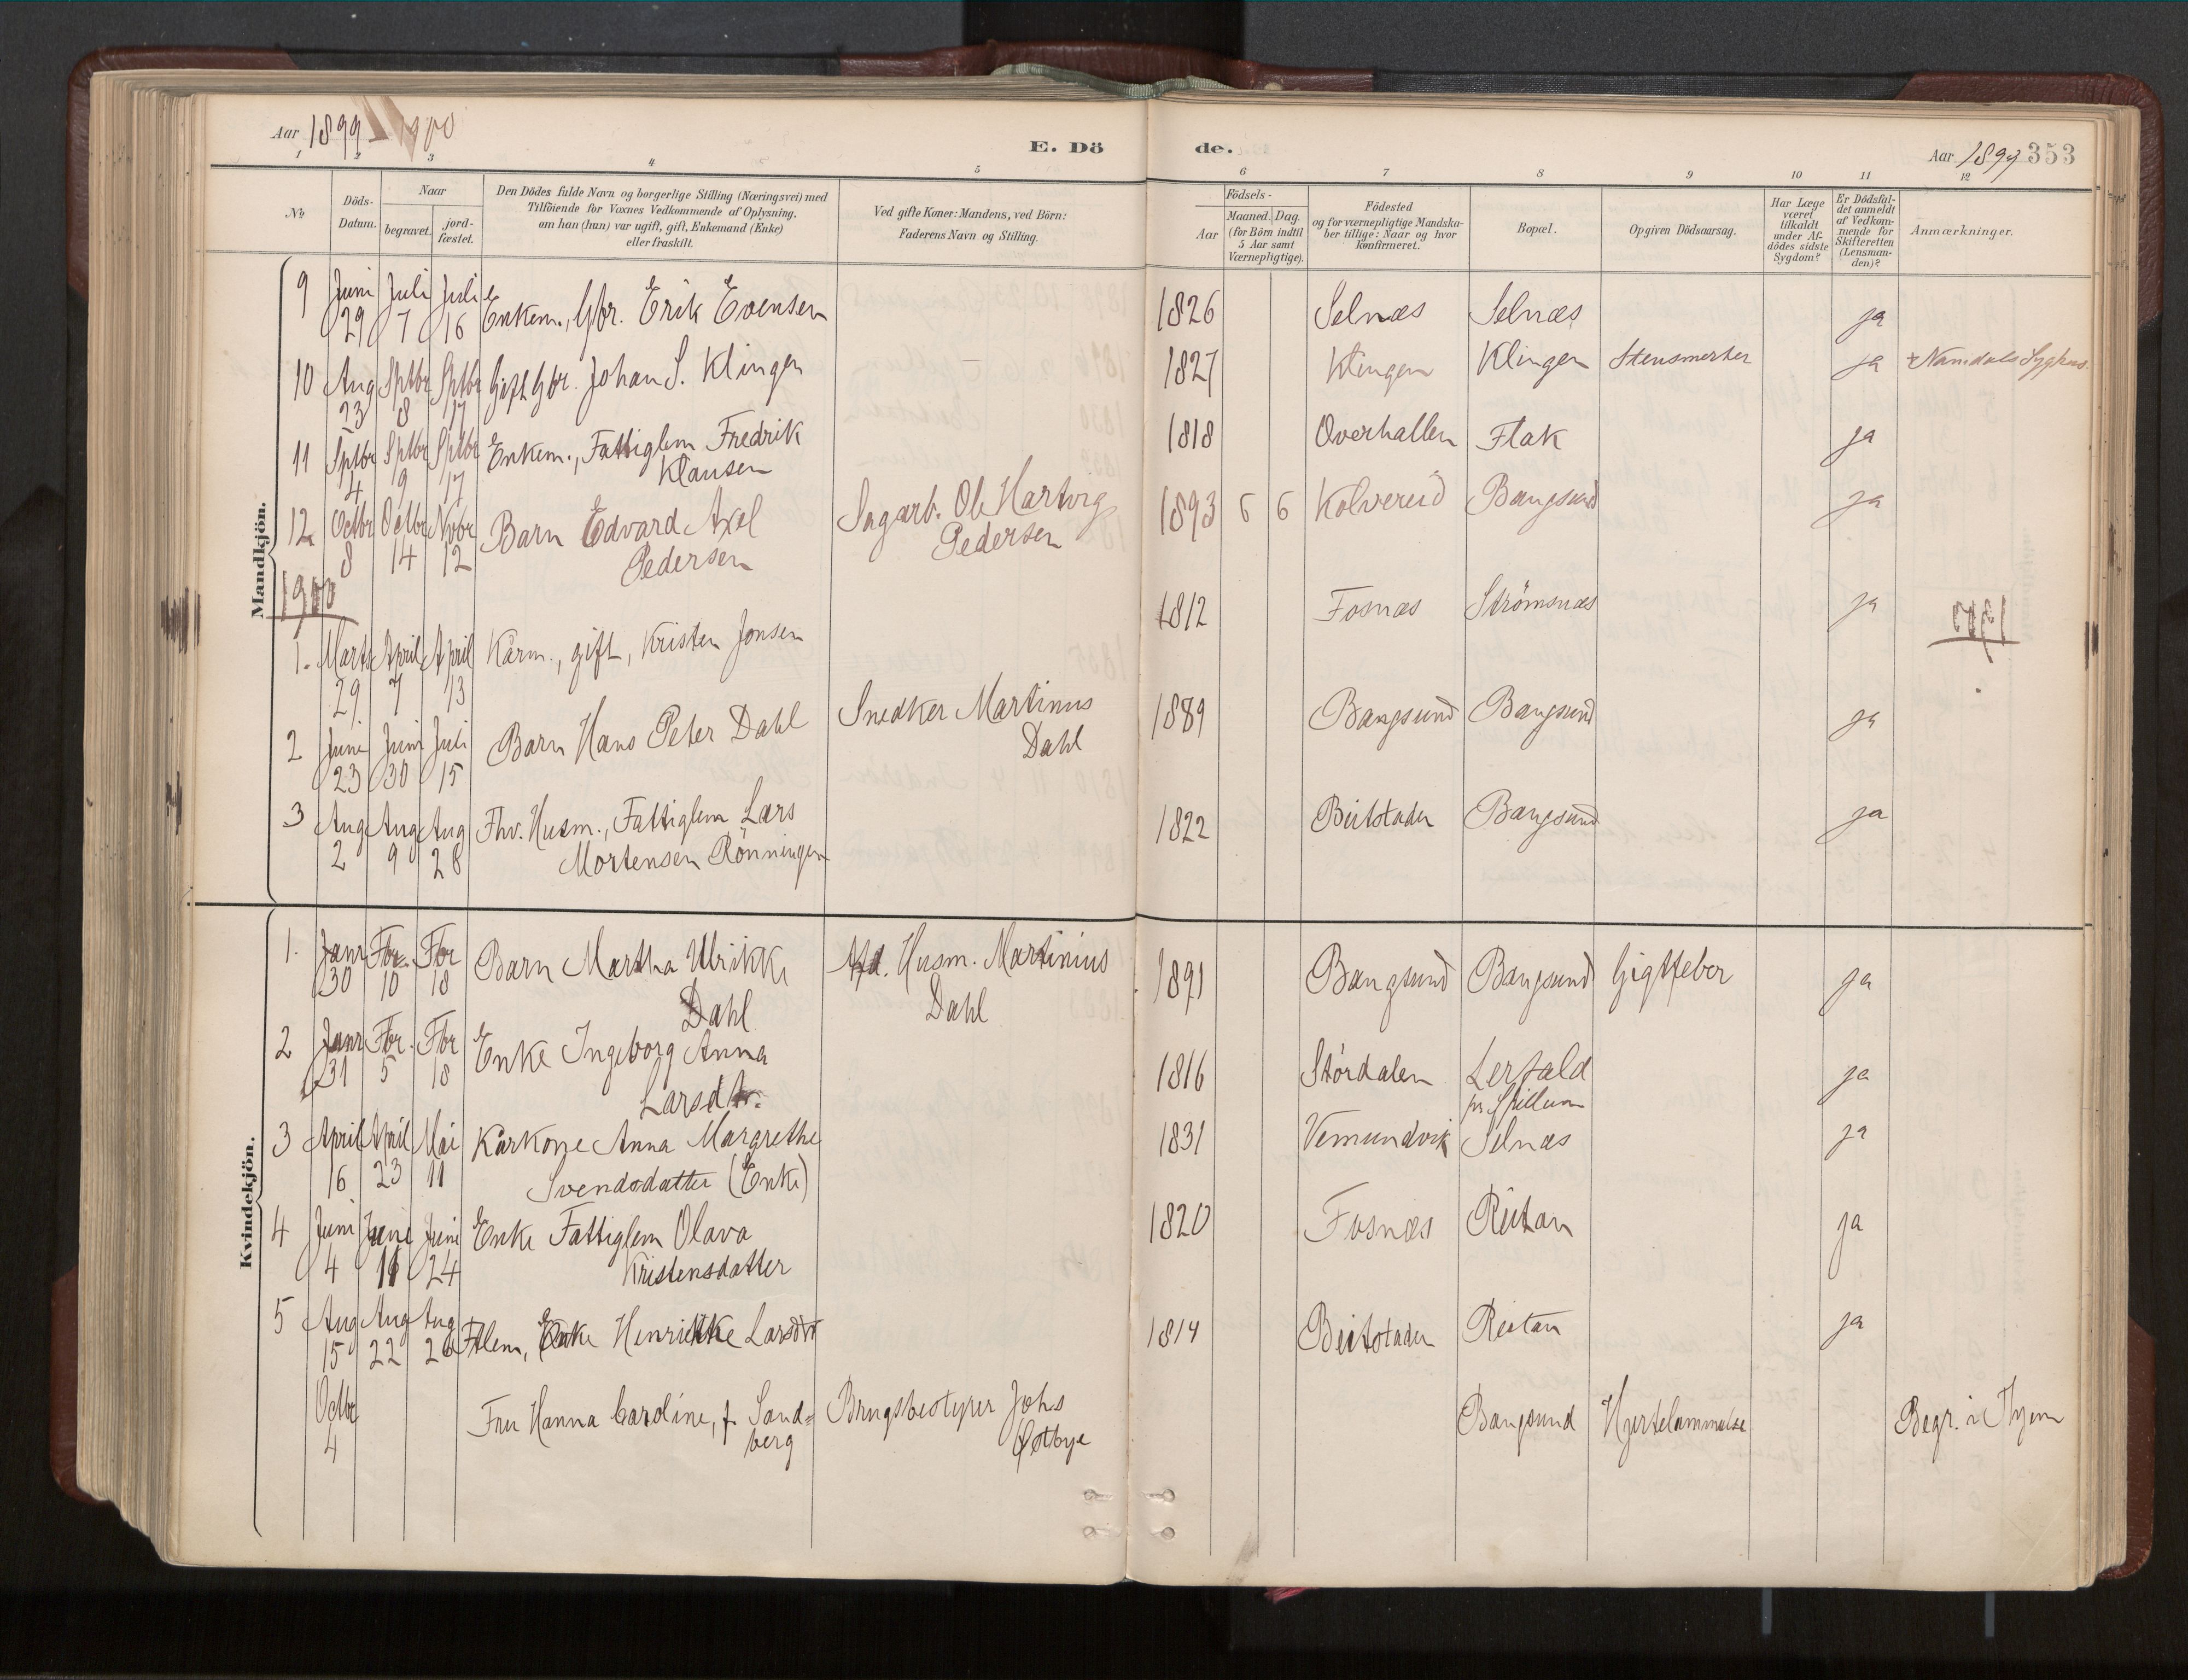 Aar 1899 - 1900
E. Dö de.
Aar 1899 353
1 2 3 4 5 6 7 8 9 10 11 12
No
Döds-Datum.
Naar
begravet. jord-fæstet.
Den Dödes fulde Navn og borgerlige Stilling (Næringsvei) med
Tilföiende for Voxnes Vedkommende af Oplysning,
om han (hun) var ugift, gift, Enkemand (Enke)
eller fraskilt.
Ved gifte Koner: Mandens, ved Börn:
Faderens Navn og Stilling.
Födsels-
Aar Maaned. Dag.
(for Börn indtil
5 Aar samt
Værnepligtige).
Födested
og for værnepligtige Mandska-
ber tillige: Naar og hvor
konfirmeret.
Bopæl.
Opgiven Dödsaarsag.
Har Læge
været
tilkaldt
under Af-
dödes sidste
Sygdom?
Er Dödsfal-
det anmeldt
af Vedkom-
mende for
Skifteretten
(Lensman-
den)?
Anmærkninger.
Mandkjön.
9 Juni Juli Juli Enkem., Gbr. Erik Evensen 1826 Selnæs Selnæs ja
29 7 16
10 Aug Sptbr Sptbr Gift Gbr. Johan S. Klingen 1827 Klingen Klingen Stensmerter ja Namdals Sygehus.
23 8 17
11 Sptbr Sptbr Sptbr Enkem., Fattiglem Fredrik 1818 Overhallen Flak ja
4 9 17 Klausen
12 Octbr Octbr Novbr Barn Edvard Axel Sagarb. Ole Hartvig 1893 6 6 Kolvereid Bangsund ja
8 14 12 Pedersen Pedersen
1900
1. Marts April April Kårm., gift, Kristen Jonsen 1812 Fosnæs Strömsnæs ja
29 7 13
2 Juni Juni Juli Barn Hans Peter Dahl Snedker Martinus 1889 Bangsund Bangsund ja
23 30 15 Dahl
3 Aug Aug Aug Fhv. Husm., Fattiglem Lars 1822 Beitstaden Bangsund ja
2 9 28 Mortensen Rönningen
Kvindekjön.
1. Janr Fbr. Fbr Barn Martha Ulrikke Afd. Husm. Martinius 1891 Bangsund Bangsund Gigtfeber ja
30 10 18 Dahl Dahl
2 Janr Fbr. Fbr Enke Ingeborg Anna 1816 Stördalen Lerfald ja
31 5 18 Larsdtr. pr. Spillum
3 April April Mai Kårkone Anna Margrethe 1831 Vemundvik Selnæs ja
16 23 11 Svendsdatter (Enke)
4 Juni Juni Juni Enke Fattiglem Olava 1820 Fosnæs Reitan ja
4 11 24 Kristensdatter
5 Aug Aug Aug Ftlem, Enke Henrikke Larsdtr 1814 Beitstaden Reitan ja
15 22 26
Octbr Fru Hanna Caroline, f. Sand= Brugsbestyrer Johs Bangsund Hjertelammelse Begr. i Thjem
4 berg Østbye